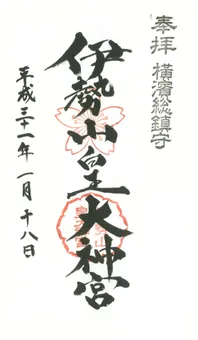 奉拝 横濱総鎮守
伊勢山皇大神宮
平成三十一年一月十八日